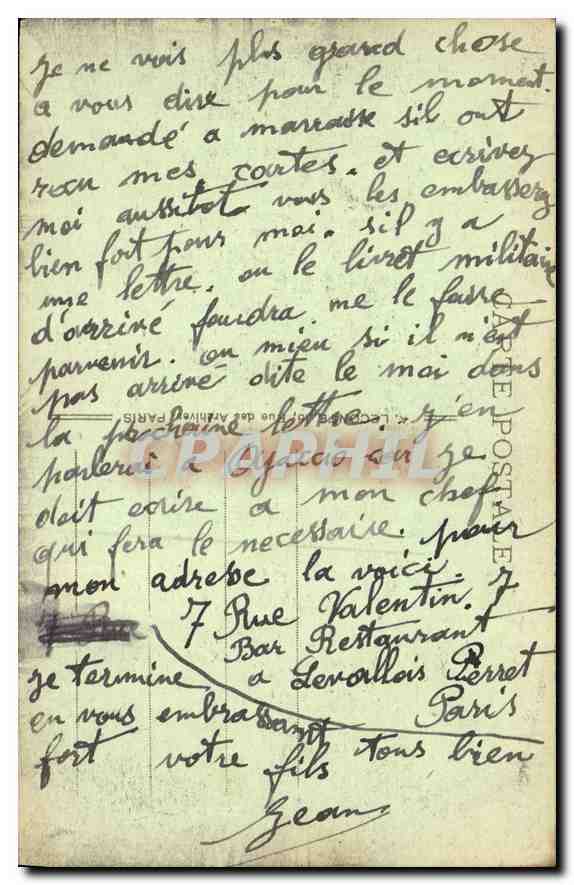 Je ne vois plus grand chose
a vous dire pour le moment.
demandé a marraine sil ont
recu mes cartes. et ecrivez
moi aussitot vous les embasserez
bien fort pour moi. s'il y a
une lettre. ou le livret militaire
d'arrivé faudra me le faire
parvenir. ou mieu si il n'est
pas arrivé dite le moi dans
la prochaine lettre. j'en
parlerai a Ajaccio car je
doit ecrire a mon chef
qui fera le necessaire. pour
mon adresse la voici.
7 Rue Valentin. 7
Bar Restaurant
a Levallois Perret
Paris
je termine
en vous embrassant
fort votre fils tous bien
Jean
CARTE POSTALE
LECONTE, Rue des Archives PARIS
CPAPHIL